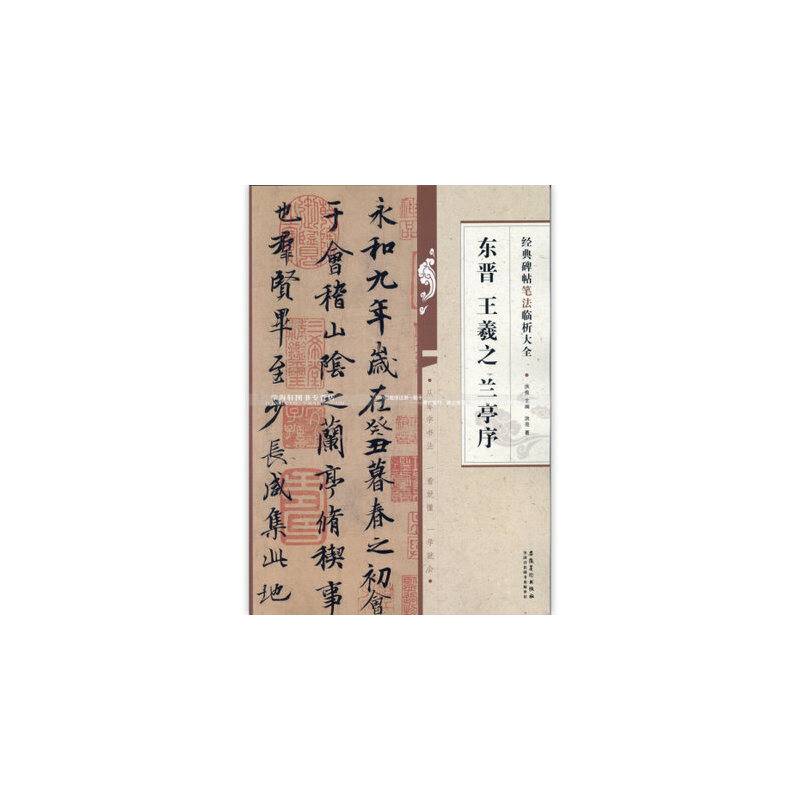 经典碑帖笔法临析大全
东晋 王羲之 兰亭序
从零学书法 一看就懂 一学就会
永和九年歲在癸丑暮春之初會
于會稽山陰之蘭亭脩稧事
也羣賢畢至少長咸集此地
学海轩图书专营店